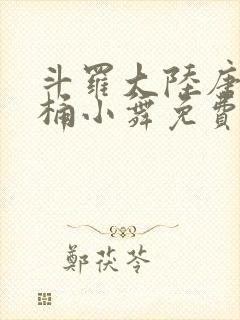 斗羅大陸唐
桶小舞免費
鄭茯苓